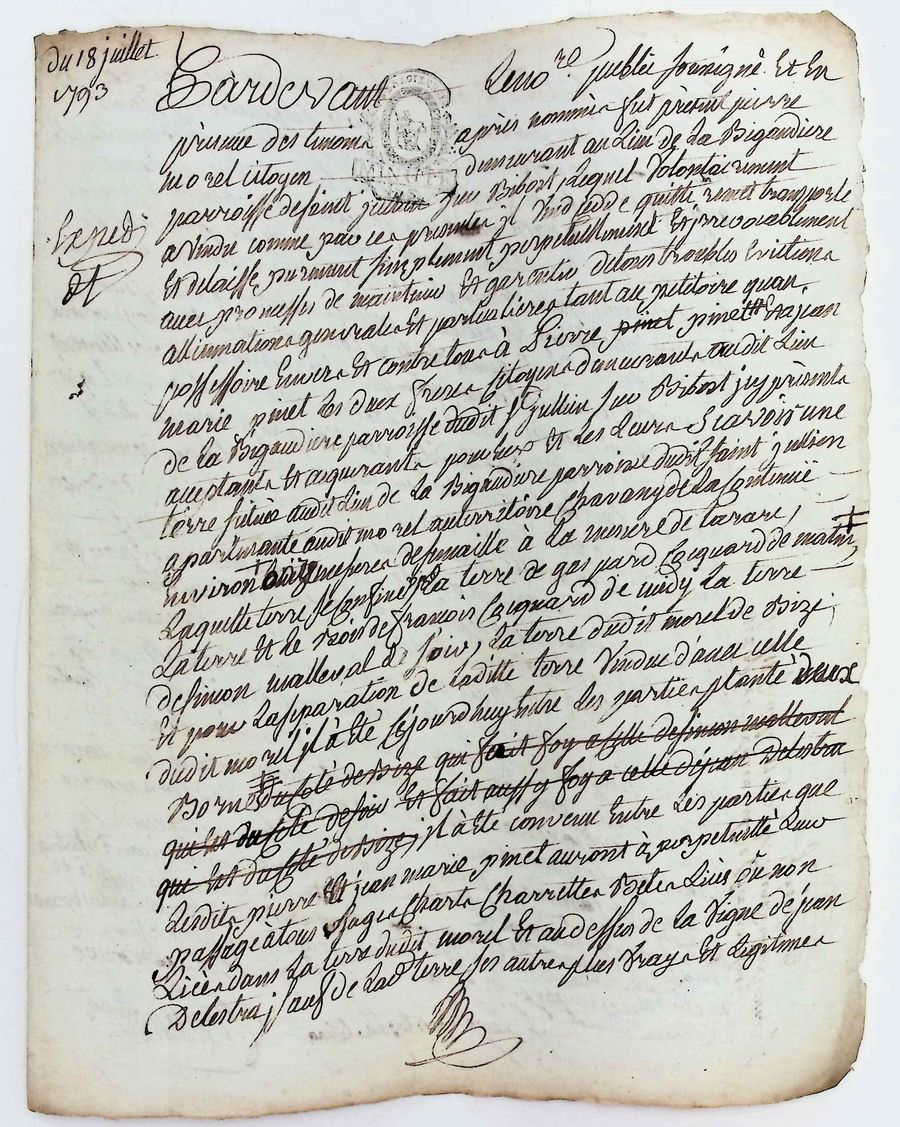 du 18 juillet
1793
Pardevant Le no.re public soussigné Et En
présence des temoins après nommés fut présent pierre
morel citoyen demeurant au Lieu de La Bigaudiere
parroisse de saint julien sur Bibost, Lequel Volontairement
a vendu comme par ces presentes il vend cede quitte remet transporte
Expedié
Et delaisse purement simplement perpetuellement Et irrevocablement
avec promesses de maintenir Et garentir de tous troubles Evictions
dt
allienations generales Et particulieres tant au petitoire quau
possessoire Envers Et contre tous à Pierre pinet pinet Et a jean
marie pinet les deux freres Citoyens demeurants audit Lieu
de La Bigaudiere parroisse dudit St Jullien sur Bibost icy présents
acceptants Et acquerants pour Eux Et Les Leurs Scavoir une
terre située audit Lieu de La Bigaudiere parroisse dudit saint jullien
apartenante audit morel au territoire Chavany de La Continue
Environ mesures de semaille à La mesure de tarare,
Laquelle terre se Confine La terre de gaspard Coquard de matin
La terre Et Le Bois de françois Coquard de midy La terre
de simon malleval de soir, La terre dudit morel de Bize;
Et pour La separation de Ladite terre Vendue d'avec celle
dudit morel il à été Cejourdhuy Entre Les parties planté deux
Bornes du coté de Bize qui fait foy a celle de simon malleval
qui Est du Coté de soir Et fait aussy foy a celle de jean Delestra
qui Est du Coté de Bize, il à été convenu Entre Les parties que
Lesdits pierre Et jean marie pinet auront à perpetuité Leur
passage à tous usages Chars Charrettes Betes Liées ou non
Liées dans La terre dudit morel Et au dessus de La Vigne de jean
Delestra, sauf de Lad. terre ses autres plus Vrays Et Legitimes